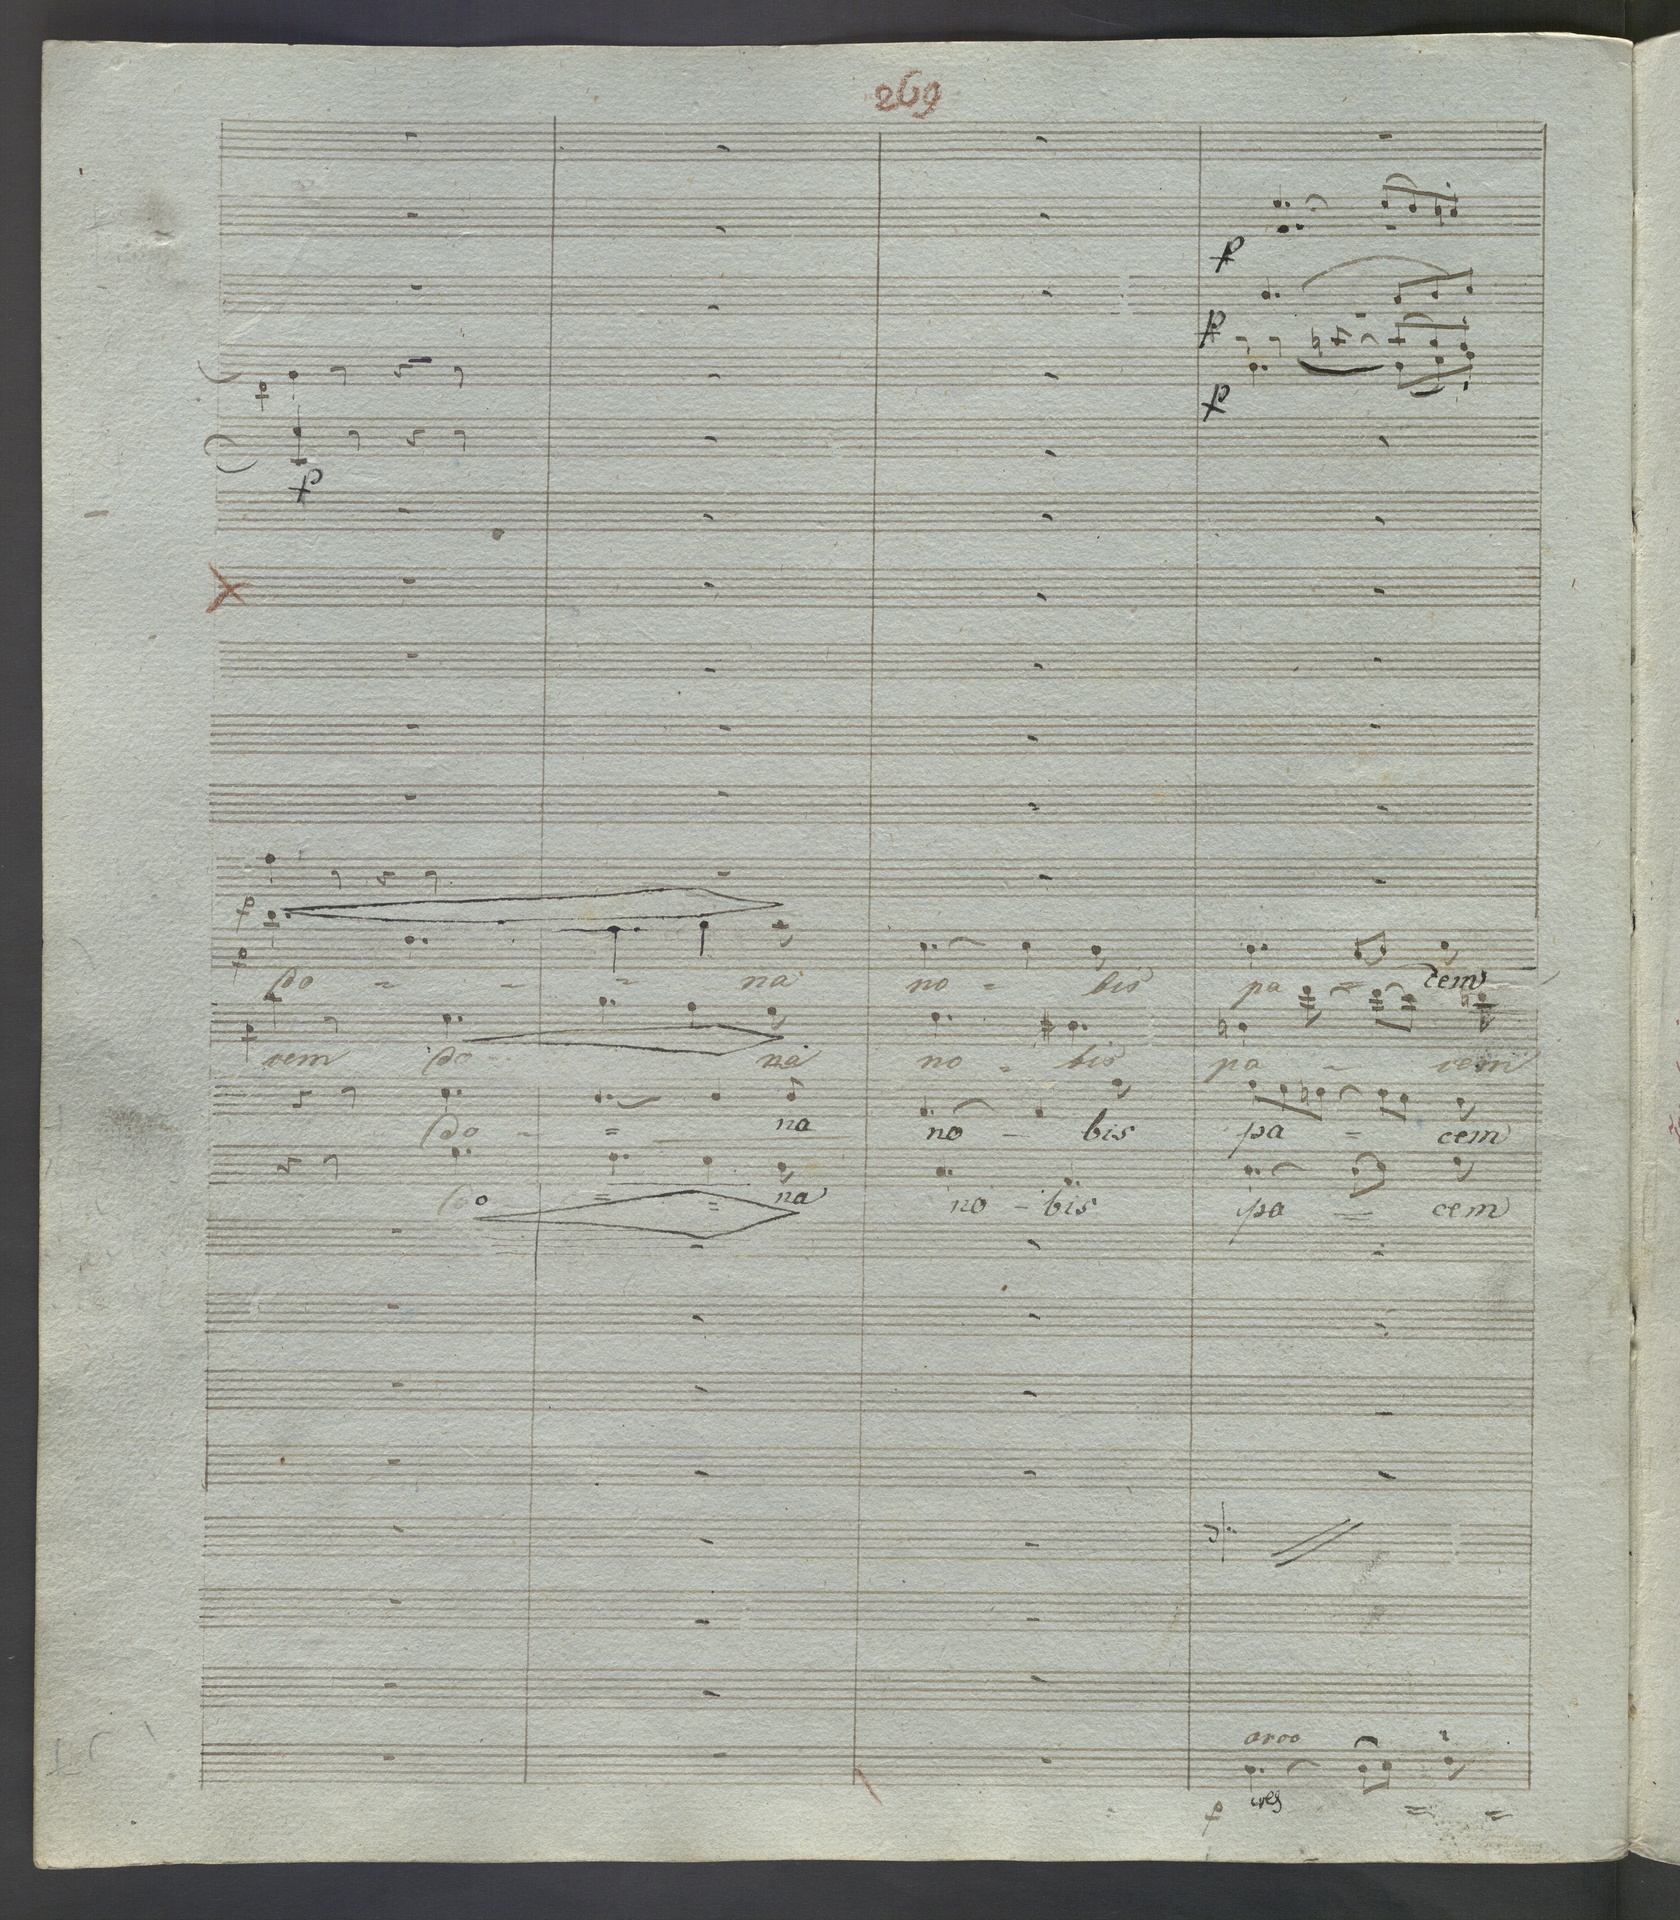 269
p
p
p
p
p
p
p
do - - - na no - bis pa = cem
cem do - na no - bis pa - cem
do - = na no - bis pa = cem
do = = na no - bis pa = cem
arco
p cres = =